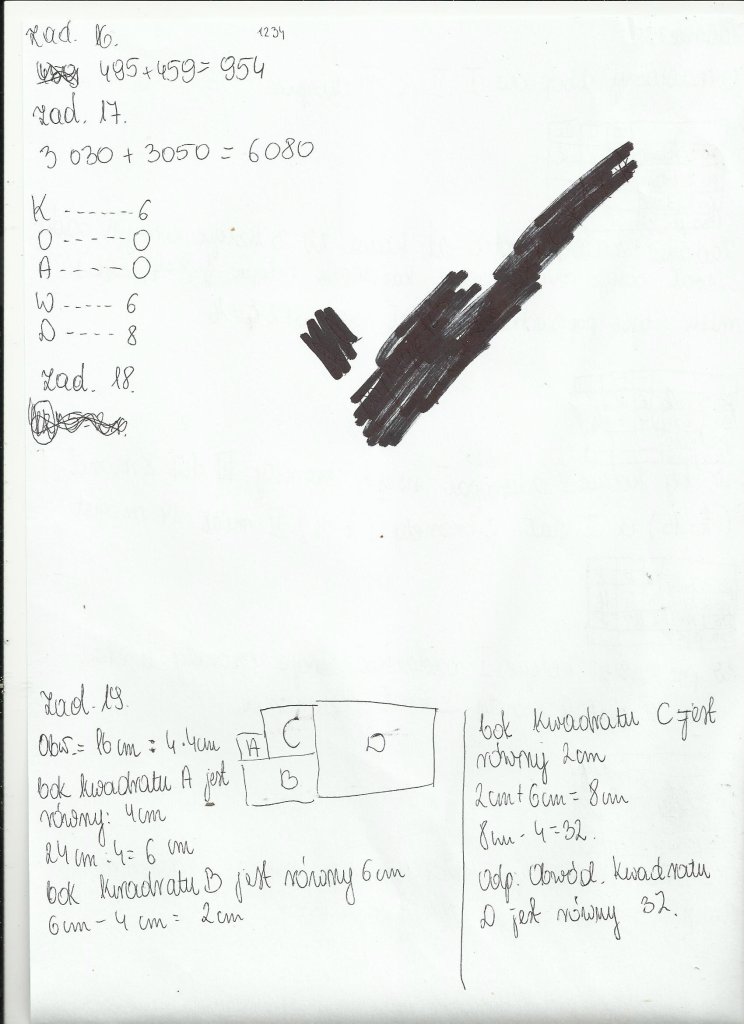 zad. 16.
1234
495+459= 954
zad. 17.
3 030 + 3050 = 6080
K ------- 6
O ----- O
A ----- O
W ----- 6
D ---- 8
zad. 18.
zad. 19.
Obw.= 16 cm : 4 · 4cm
bok kwadratu A jest
równy: 4cm
24 cm : 4 = 6 cm
bok kwadratu B jest równy 6 cm
6 cm - 4 cm = 2 cm
A
C
B
D
bok kwadratu C jest
równy 2cm
2cm + 6cm = 8cm
8cm · 4 = 32.
Odp. Obwód. kwadratu
D jest równy 32.